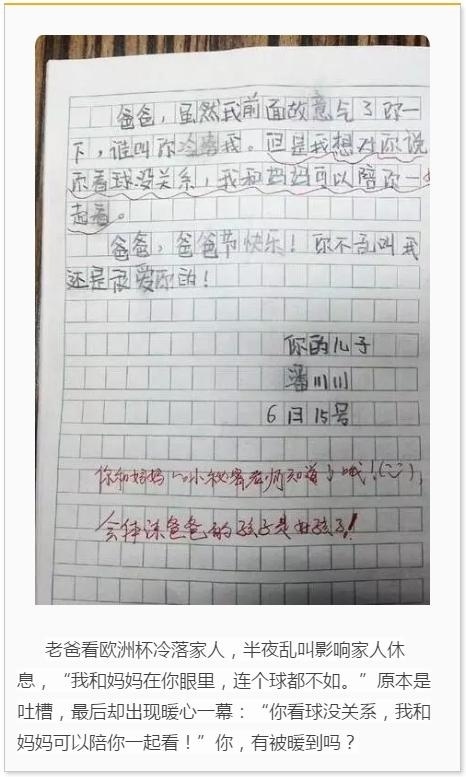 爸爸，虽然我前面故意气了你一
下，谁叫你冷落我。但是我想对你说
你看球没关系，我和妈妈可以陪你一
起看。
爸爸，爸爸节快乐！你不乱叫我
还是爱你的！
你的儿子
潘川川
6月15号
你和妈妈的小秘密老师知道了哦！
会体谅爸爸的孩子是好孩子！
老爸看欧洲杯冷落家人，半夜乱叫影响家人休
息，“我和妈妈在你眼里，连个球都不如。”原本是
吐槽，最后却出现暖心一幕：“你看球没关系，我和
妈妈可以陪你一起看！”你，有被暖到吗？